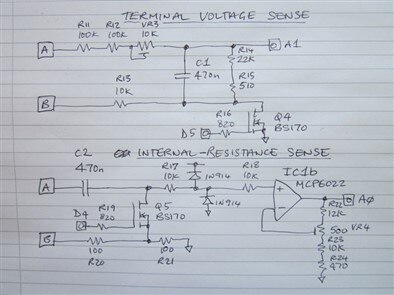 TERMINAL VOLTAGE SENSE
R11 R12 VR3
100K 100K 10K
A
A1
C1
470n
R14
22K
R15
510
R13
10K
B
R16
820
Q4
BS170
D5
C2 INTERNAL-RESISTANCE SENSE
470n
R17
10K
1N914
R18
10K
IC1b
MCP6022
A
A0
1N914
R19
820
Q5
BS170
D4
R22
12K
500 VR4
R23
10K
R24
470
B
100 100
R20 R21